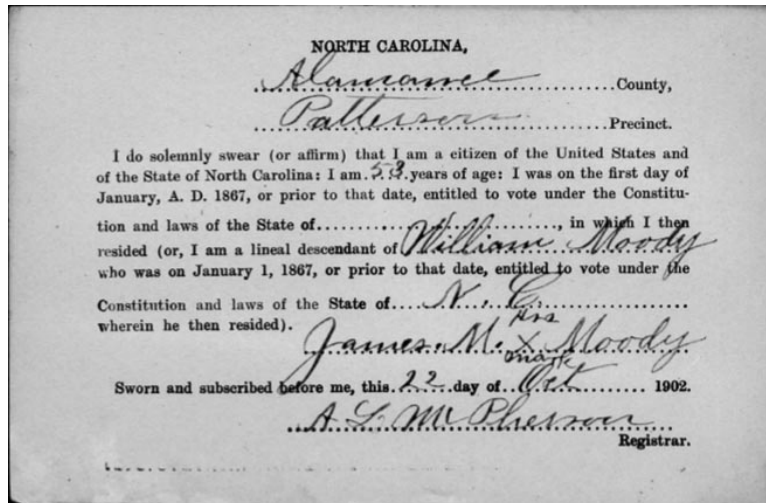 NORTH CAROLINA,
Alamance County,
Patterson Precinct.
I do solemnly swear (or affirm) that I am a citizen of the United States and
of the State of North Carolina: I am 53 years of age: I was on the first day of
January, A. D. 1867, or prior to that date, entitled to vote under the Constitu-
tion and laws of the State of...................................., in which I then
resided (or, I am a lineal descendant of William Moody
who was on January 1, 1867, or prior to that date, entitled to vote under the
Constitution and laws of the State of N. C.
wherein he then resided).
His
James. M. X Moody
mark
Sworn and subscribed before me, this 22 day of Oct 1902.
A L McPherson
Registrar.